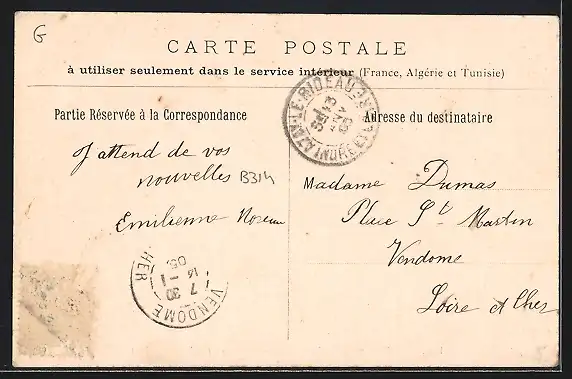 G
CARTE POSTALE
à utiliser seulement dans le service intérieur (France, Algérie et Tunisie)
Partie Réservée à la Correspondance
Adresse du destinataire
AZAY-LE-RIDEAU
INDRE ET L
J'attend de vos
nouvelles B314
Emilienne
Madame Dumas
Place St Martin
Vendome
Loire et Cher
VENDOME
7 30
14 - 1
05
HER